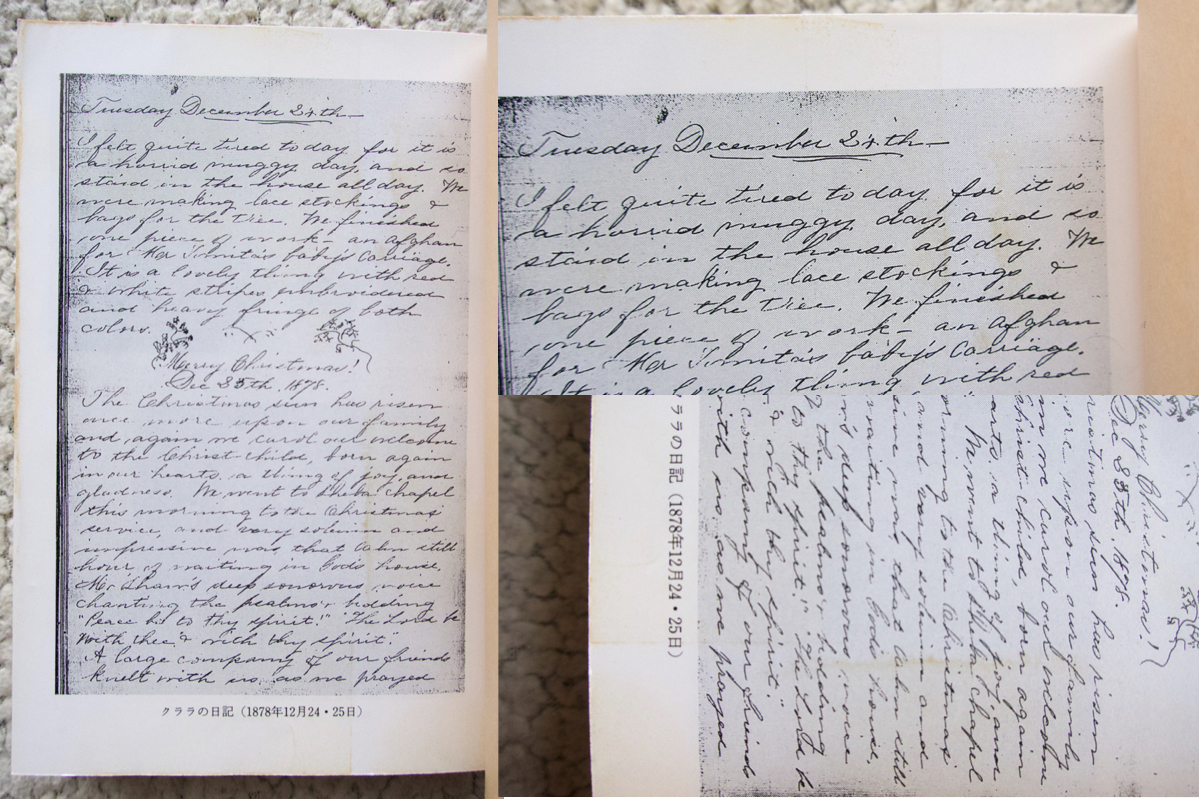 Tuesday December 24th
I felt quite tired to day for it is
a horrid muggy day, and so
staid in the house all day. We
were making lace stockings &
bags for the tree. We finished
one piece of work – an Afghan
for Mr Tomita's baby's carriage.
It is a lovely thing with red
& white stripes embroidered
and heavy fringe of both
colors.
Merry Christmas!
Dec 25th. 1878.
The Christmas sun has risen
once more upon our family
and again we carol our welcome
to the Christ-child, born again
in our hearts, a thing of joy and
gladness. We went to Shiba chapel
this morning to the Christmas
service, and very solemn and
impressive was that calm still
hour of waiting in God's house,
Mr Shaw's deep sonorous voice
chanting the psalms & bidding
"Peace be to thy spirit!" "The Lord be
with thee & with thy spirit".
A large company of our friends
knelt with us, as we prayed
クララの日記（1878年12月24・25日）
Tuesday December 24th
I felt quite tired to day for it is
a horrid muggy day, and so
staid in the house all day. We
were making lace stockings &
bags for the tree. We finished
one piece of work – an Afghan
for Mr Tomita's baby's carriage.
It is a lovely thing with red
Merry Christmas!
Dec 25th. 1878.
ristmas sun has risen
ore upon our family
in we carol our welcome
Christ-child, born again
arts, a thing of joy and
We went to Shiba chapel
rning to the Christmas
and very solemn and
sive was that calm still
waiting in God's house,
w's deep sonorous voice
the psalms & bidding
to thy spirit!" "The Lord be
& with thy spirit".
company of our friends
with us, as we prayed
ララの日記（1878年12月24・25日）